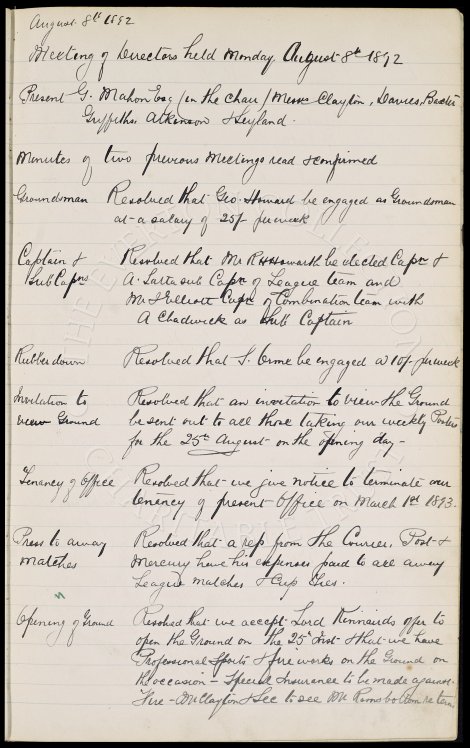 August 8th 1892
Meeting of Directors held Monday, August 8th 1892
Present G. Mahon Esq (in the chair) Messrs Clayton, Davies, Baxter
Griffiths Atkinson & Leyland.
Minutes of two previous Meetings read & confirmed
Groundsman Resolved that Geo. Howard be engaged as Groundsman
at a salary of 25/- per week
Captain & Resolved that Mr R H Howarth be elected Capn &
Sub Capns A. Latta sub Capn of League team and
Mr J Elliott Capn of Combination team with
A Chadwick as Sub Captain
Rubber down Resolved that J. Orme be engaged @ 10/- per week
Invitation to Resolved that an invitation to view the Ground
view Ground be sent out to all those taking our weekly Posters
for the 25th August - on the opening day -
Tenancy of Office Resolved that we give notice to terminate our
tenancy of present Office on March 1st 1893.
Press to away Resolved that a rep from the Courier, Post &
matches Mercury have his expenses paid to all away
League matches & Cup Ties.
Opening of Ground Resolved that we accept Lord Kinnairds offer to
open the Ground on the 25th Inst & that we have
Professional Sports & fireworks on the Ground on
the occasion - Special Insurance to be made against
Fire - Mr Clayton & Sec to see Mr Ramsbottom re